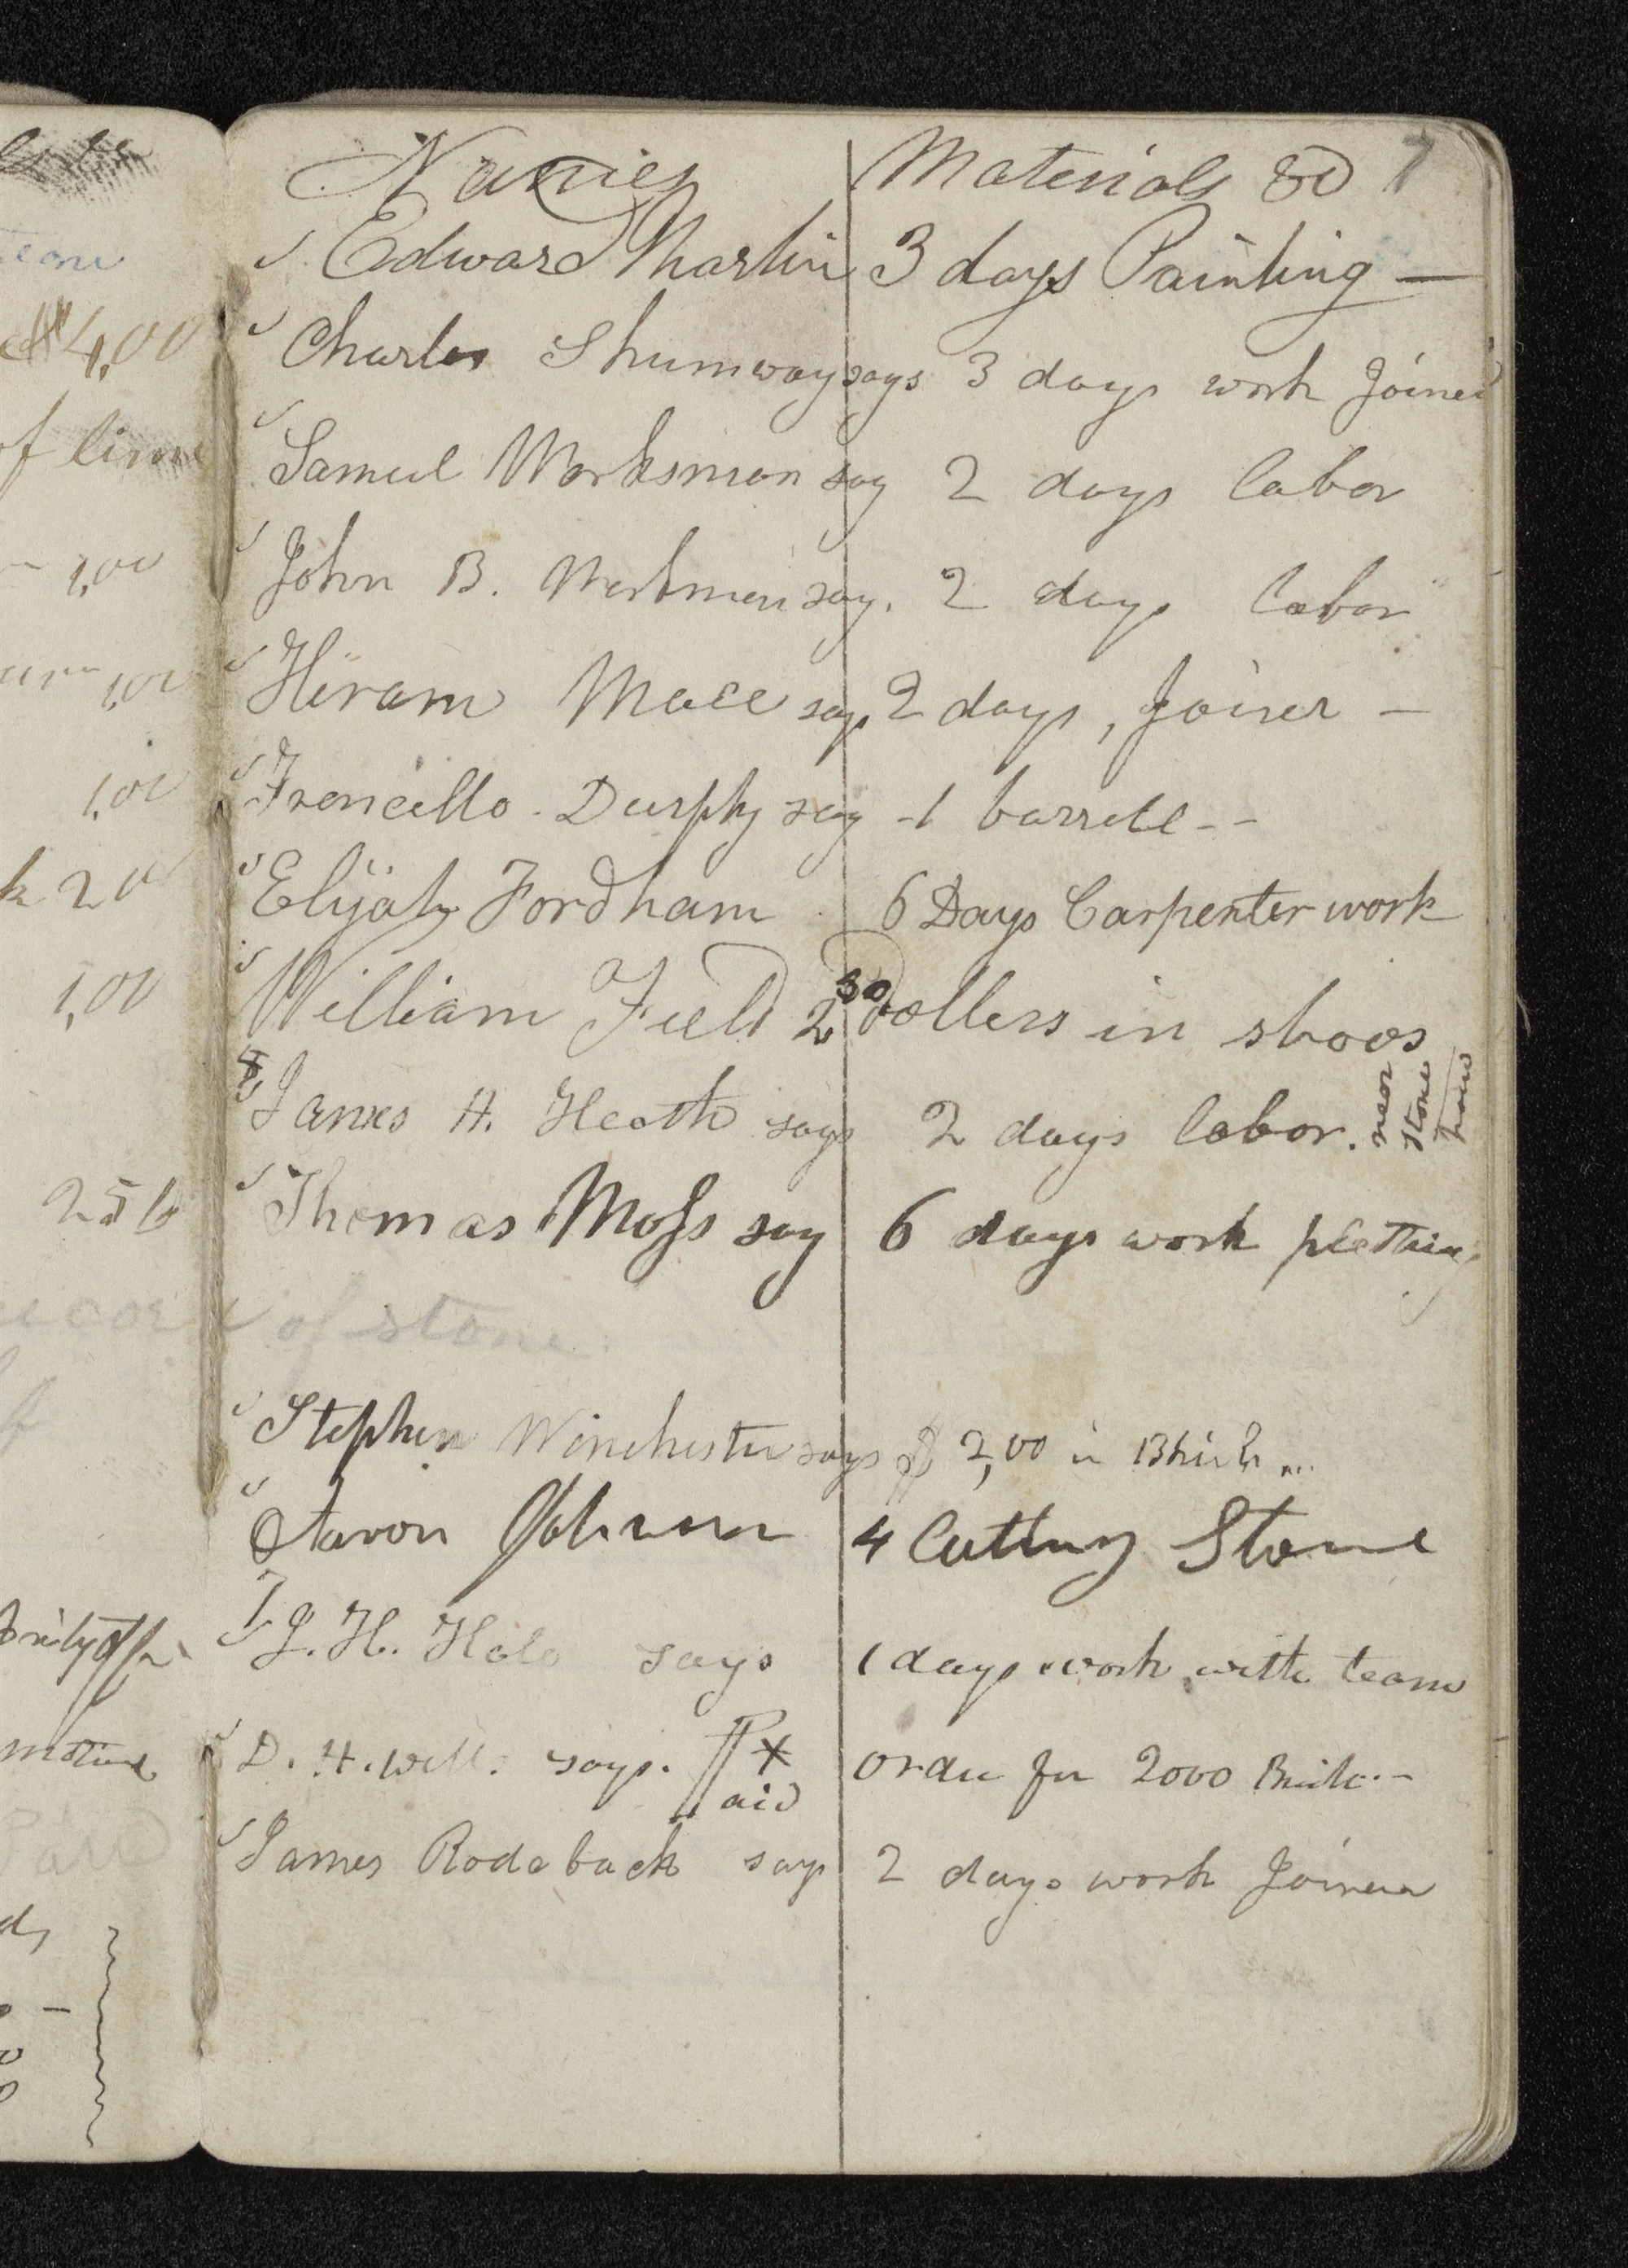 $4,00
of lime
1,00
1,00
1,00
k 2 0
1,00
25 lb
Names Materials &c 7
Edward Martin 3 days Painting —
Charles Shumway says 3 days work Joiner
Samuel Worksman say 2 days labor
John B. Workmen say. 2 days labor
Hiram Mace says 2 days, Joiner —
Francillo Durphy say -1 barrell--
Elijah Fordham 6 Days Carpenter work
William Field 2 50 Dollers in shoos
James H. Heath says 2 days labor. near stone
Thomas Moss say 6 days work
of stone
Stephen Winchester says $ 2,00 in
Aaron Johnson 4 Cutting Stone
J. H. Hale says 1 days work with team
D. H. Wells says. Paid order for 2000 Brick.-
James Rodeback says 2 days work Joiner